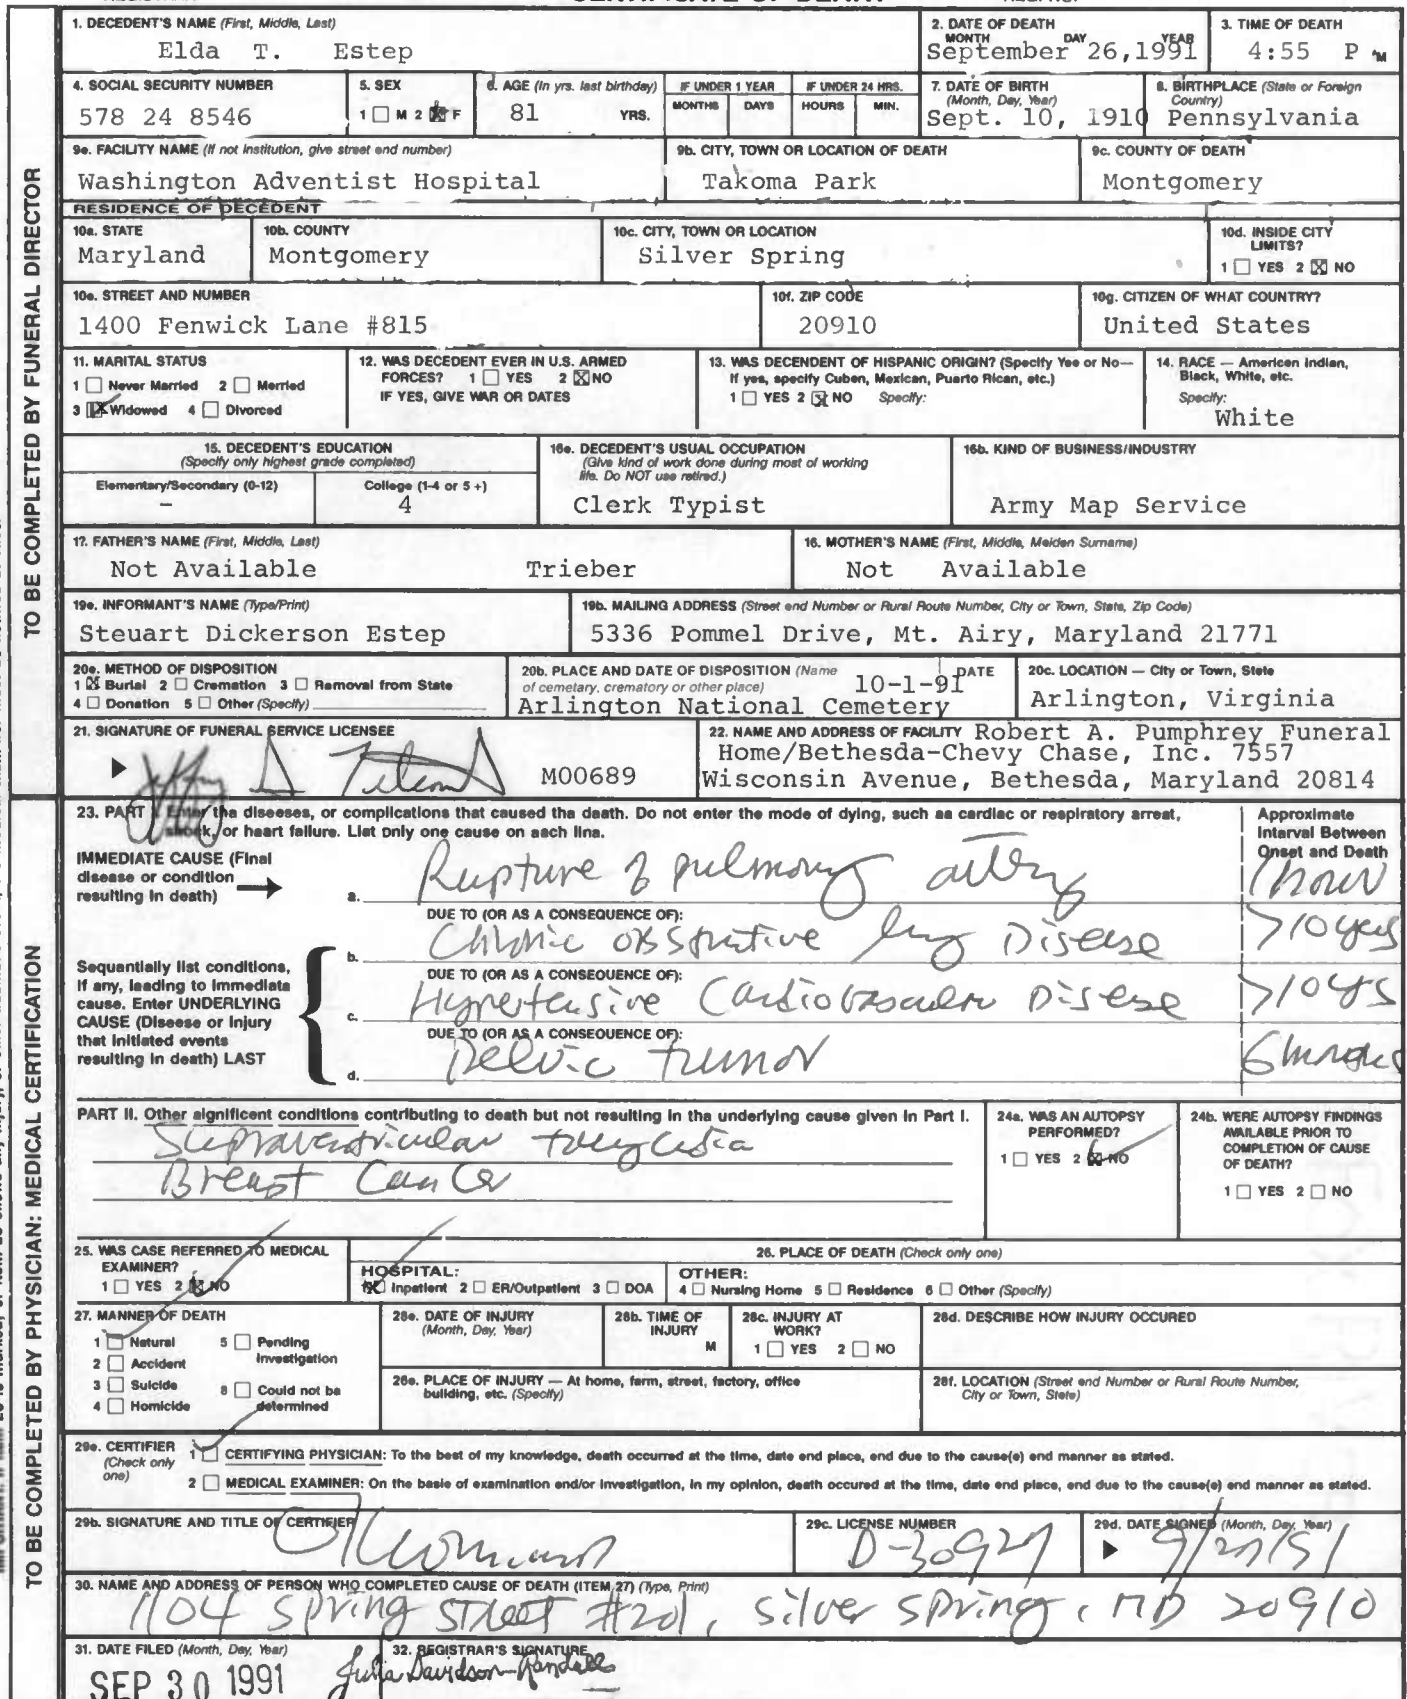 CERTIFICATE OF DEATH
1. DECEDENT'S NAME (First, Middle, Last)
Elda T. Estep
2. DATE OF DEATH
MONTH DAY YEAR
September 26,1991
3. TIME OF DEATH
4:55 P M
4. SOCIAL SECURITY NUMBER
578 24 8546
5. SEX
1 M 2 F
6. AGE (In yrs. last birthday)
81 YRS.
IF UNDER 1 YEAR
MONTHS DAYS
IF UNDER 24 HRS.
HOURS MIN.
7. DATE OF BIRTH
(Month, Day, Year)
Sept. 10, 1910
8. BIRTHPLACE (State or Foreign
Country)
Pennsylvania
9a. FACILITY NAME (If not institution, give street and number)
Washington Adventist Hospital
9b. CITY, TOWN OR LOCATION OF DEATH
Takoma Park
9c. COUNTY OF DEATH
Montgomery
RESIDENCE OF DECEDENT
10a. STATE
Maryland
10b. COUNTY
Montgomery
10c. CITY, TOWN OR LOCATION
Silver Spring
10d. INSIDE CITY
LIMITS?
1 YES 2 NO
10e. STREET AND NUMBER
1400 Fenwick Lane #815
10f. ZIP CODE
20910
10g. CITIZEN OF WHAT COUNTRY?
United States
11. MARITAL STATUS
1 Never Married 2 Married
3 Widowed 4 Divorced
12. WAS DECEDENT EVER IN U.S. ARMED
FORCES? 1 YES 2 NO
IF YES, GIVE WAR OR DATES
13. WAS DECENDENT OF HISPANIC ORIGIN? (Specify Yes or No—
If yes, specify Cuban, Mexican, Puerto Rican, etc.)
1 YES 2 NO Specify:
14. RACE — American Indian,
Black, White, etc.
Specify:
White
15. DECEDENT'S EDUCATION
(Specify only highest grade completed)
Elementary/Secondary (0-12)
-
College (1-4 or 5 +)
4
16a. DECEDENT'S USUAL OCCUPATION
(Give kind of work done during most of working
life. Do NOT use retired.)
Clerk Typist
16b. KIND OF BUSINESS/INDUSTRY
Army Map Service
17. FATHER'S NAME (First, Middle, Last)
Not Available Trieber
18. MOTHER'S NAME (First, Middle, Maiden Surname)
Not Available
19a. INFORMANT'S NAME (Type/Print)
Steuart Dickerson Estep
19b. MAILING ADDRESS (Street and Number or Rural Route Number, City or Town, State, Zip Code)
5336 Pommel Drive, Mt. Airy, Maryland 21771
20a. METHOD OF DISPOSITION
1 Burial 2 Cremation 3 Removal from State
4 Donation 5 Other (Specify)
20b. PLACE AND DATE OF DISPOSITION (Name DATE
of cemetary, crematory or other place) 10-1-91
Arlington National Cemetery
20c. LOCATION — City or Town, State
Arlington, Virginia
21. SIGNATURE OF FUNERAL SERVICE LICENSEE
M00689
22. NAME AND ADDRESS OF FACILITY Robert A. Pumphrey Funeral
Home/Bethesda-Chevy Chase, Inc. 7557
Wisconsin Avenue, Bethesda, Maryland 20814
TO BE COMPLETED BY FUNERAL DIRECTOR
23. PART Enter the diseases, or complications that caused the death. Do not enter the mode of dying, such as cardiac or respiratory arrest,
shock, or heart failure. List only one cause on each line.
Approximate
Interval Between
Onset and Death
IMMEDIATE CAUSE (Final
disease or condition
resulting in death)
a. Rupture of pulmonary artery 1 hour
DUE TO (OR AS A CONSEQUENCE OF):
b. Chronic obstrutive lung Disease >10 years
DUE TO (OR AS A CONSEQUENCE OF):
c. Hypertensive Cardiovascular Disease >10 yrs
DUE TO (OR AS A CONSEQUENCE OF):
d. Pelvic tumor 6 months
Sequentially list conditions,
if any, leading to immediate
cause. Enter UNDERLYING
CAUSE (Disease or injury
that initiated events
resulting in death) LAST
PART II. Other significant conditions contributing to death but not resulting in the underlying cause given in Part I.
Supraventricular
Breast Cancer
24a. WAS AN AUTOPSY
PERFORMED?
1 YES 2 NO
24b. WERE AUTOPSY FINDINGS
AVAILABLE PRIOR TO
COMPLETION OF CAUSE
OF DEATH?
1 YES 2 NO
25. WAS CASE REFERRED TO MEDICAL
EXAMINER?
1 YES 2 NO
26. PLACE OF DEATH (Check only one)
HOSPITAL:
1 Inpatient 2 ER/Outpatient 3 DOA
OTHER:
4 Nursing Home 5 Residence 6 Other (Specify)
27. MANNER OF DEATH
1 Natural 5 Pending
Investigation
2 Accident
3 Suicide 8 Could not be
determined
4 Homicide
28a. DATE OF INJURY
(Month, Day, Year)
28b. TIME OF
INJURY
M
28c. INJURY AT
WORK?
1 YES 2 NO
28d. DESCRIBE HOW INJURY OCCURED
28e. PLACE OF INJURY — At home, farm, street, factory, office
building, etc. (Specify)
28f. LOCATION (Street and Number or Rural Route Number,
City or Town, State)
29a. CERTIFIER
(Check only
one)
1 CERTIFYING PHYSICIAN: To the best of my knowledge, death occurred at the time, date and place, and due to the cause(s) and manner as stated.
2 MEDICAL EXAMINER: On the basis of examination and/or investigation, in my opinion, death occured at the time, date and place, and due to the cause(s) and manner as stated.
29b. SIGNATURE AND TITLE OF CERTIFIER
29c. LICENSE NUMBER
D-30927
29d. DATE SIGNED (Month, Day, Year)
9/27/91
30. NAME AND ADDRESS OF PERSON WHO COMPLETED CAUSE OF DEATH (ITEM 27) (Type, Print)
1104 Spring Street #201, Silver Spring, MD 20910
31. DATE FILED (Month, Day, Year)
SEP 30 1991
32. REGISTRAR'S SIGNATURE
Julia Davidson-Randall
TO BE COMPLETED BY PHYSICIAN: MEDICAL CERTIFICATION